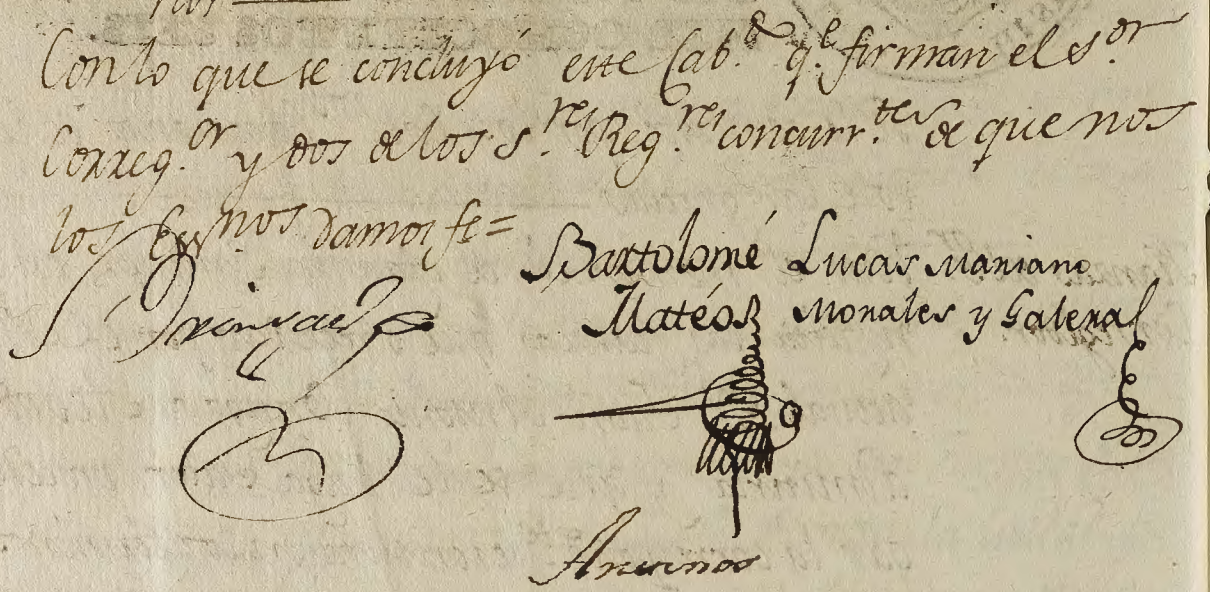 Con lo que se concluyó este Cab.º q.e firman el s.or
Correg.or y dos de los s.res Reg.res concurr.tes de que nos
los Essnos damos fe=
Bartolomé Lucas Mariano
Matéos Morales y Galeral